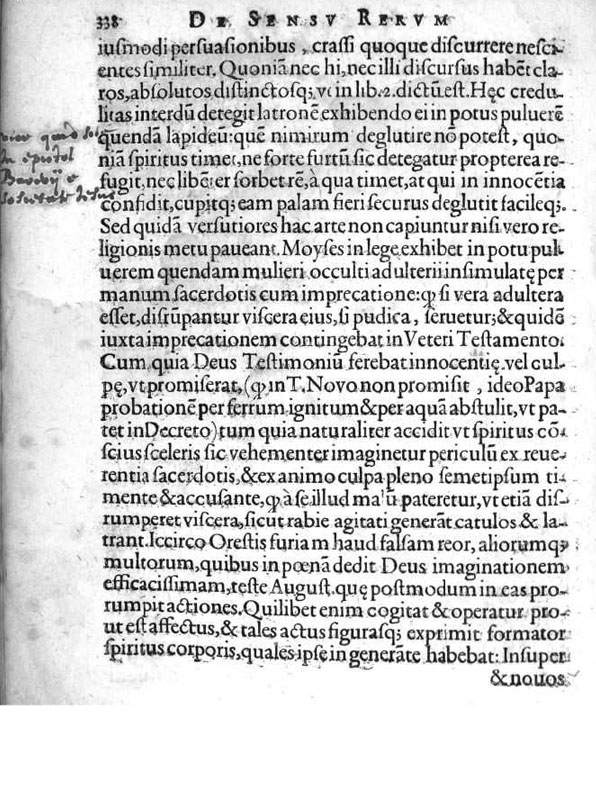 338 DE SENSV RERVM
iusmodi persuasionibus, crassi quoque discurrere nesci-
entes similiter. Quoniā nec hi, nec illi discursus habēt cla-
ros, absolutos distinctosq;, vt in lib. 2. dictū est. Hęc credu-
litas interdū detegit latronē exhibendo ei in potus puluerē
quendā lapideū: quē nimirum deglutire nō potest, quo-
niā spiritus timet, ne forte furtū sic detegatur propterea re-
fugit, nec libēter sorbet rē, à qua timet, at qui in innocētia
confidit, cupitq; eam palam fieri securus deglutit facileq;.
Sed quidā versutiores hac arte non capiuntur nisi vero re-
ligionis metu paueant. Moyses in lege exhibet in potu pul-
uerem quendam mulieri occulti adulterii insimulatę per
manum sacerdotis cum imprecatione: ꝙ si vera adultera
esset, disrūpantur viscera eius, si pudica, seruetur; & quidē
iuxta imprecationem contingebat in Veteri Testamento:
Cum, quia Deus Testimoniū ferebat innocentię vel cul-
pę, vt promiserat, (ꝙ in T. Novo non promisit, ideo Papa
probationē per ferrum ignitum & per aquā abstulit, vt pa-
tet in Decreto) tum quia naturaliter accidit vt spiritus cō-
scius sceleris sic vehementer imaginetur periculū ex reue-
rentia sacerdotis, & ex animo culpa pleno semetipsum ti-
mente & accusante, ꝙ à se illud malū pateretur, vt etiā dis-
rumperet viscera, sicut rabie agitati generāt catulos & la-
trant. Iccirco Orestis furiam haud falsam reor, aliorumq;
multorum, quibus in pœnā dedit Deus imaginationem
efficacissimam, teste August. quę postmodum in eas pro-
rumpit actiones. Quilibet enim cogitat & operatur pro-
ut est affectus, & tales actus figurasq; exprimit formator
spiritus corporis, quales ipse in generāte habebat: Insuper
& nouos